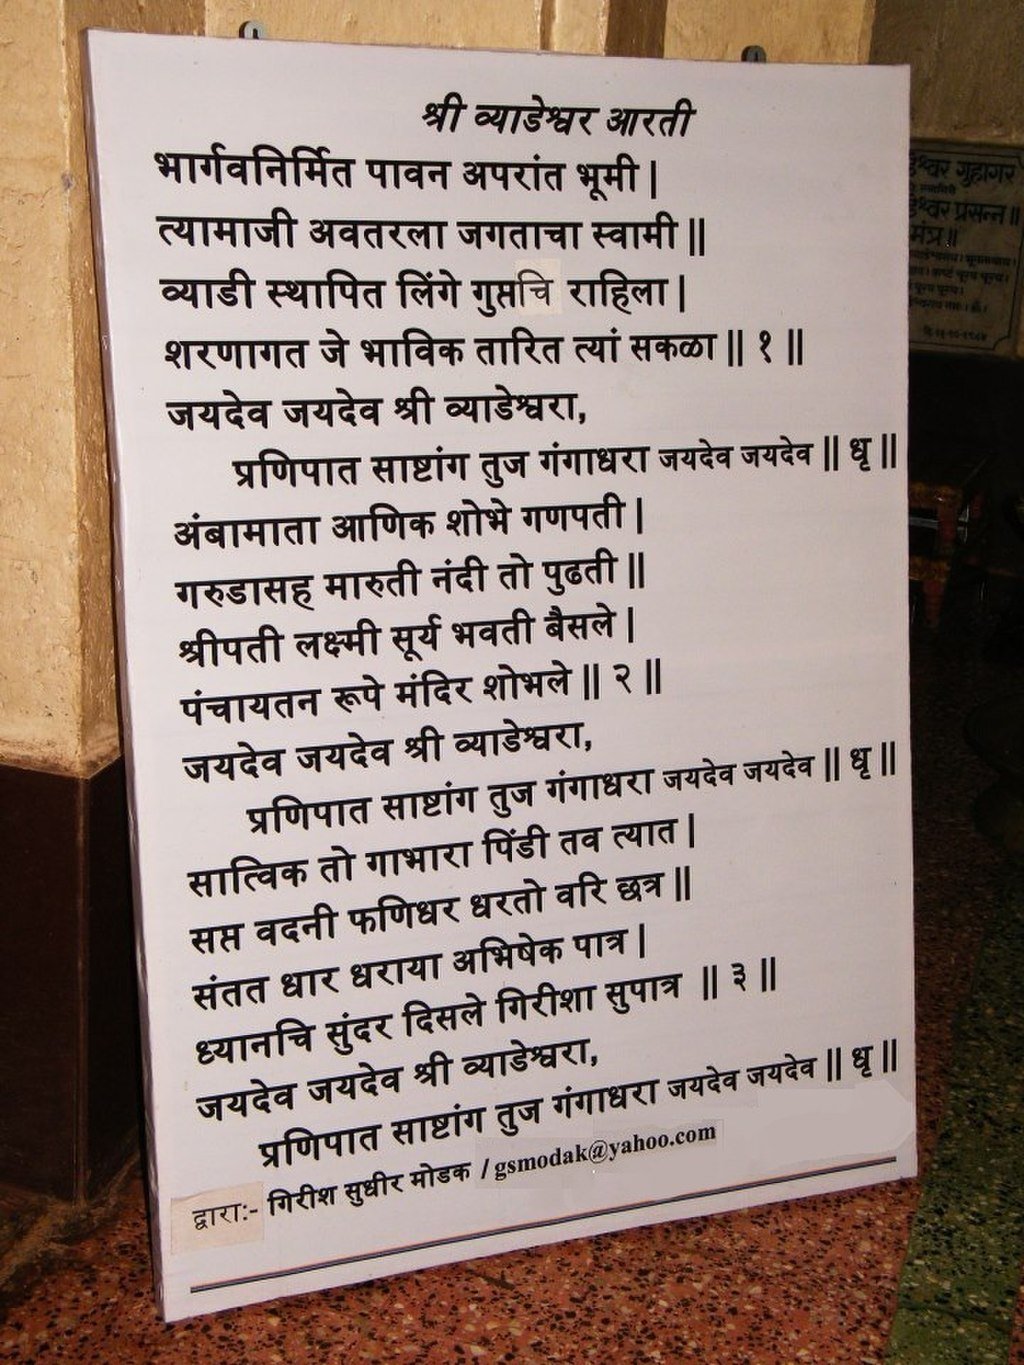 श्री व्याडेश्वर आरती
भार्गवनिर्मित पावन अपरांत भूमी |
त्यामाजी अवतरला जगताचा स्वामी ||
व्याडी स्थापित लिंगे गुप्तचि राहिला |
शरणागत जे भाविक तारित त्यां सकळा || १ ||
जयदेव जयदेव श्री व्याडेश्वरा,
प्रणिपात साष्टांग तुज गंगाधरा जयदेव जयदेव || धृ ||
अंबामाता आणिक शोभे गणपती |
गरुडासह मारुती नंदी तो पुढती ||
श्रीपती लक्ष्मी सूर्य भवती बैसले |
पंचायतन रूपे मंदिर शोभले || २ ||
जयदेव जयदेव श्री व्याडेश्वरा,
प्रणिपात साष्टांग तुज गंगाधरा जयदेव जयदेव || धृ ||
सात्विक तो गाभारा पिंडी तव त्यात |
सप्त वदनी फणिधर धरतो वरि छत्र ||
संतत धार धराया अभिषेक पात्र |
ध्यानचि सुंदर दिसले गिरीशा सुपात्र || ३ ||
जयदेव जयदेव श्री व्याडेश्वरा,
प्रणिपात साष्टांग तुज गंगाधरा जयदेव जयदेव || धृ ||
द्वारा:- गिरीश सुधीर मोडक / gsmodak@yahoo.com
डेश्वर गुहागर
डेश्वर प्रसन्न ||
मंत्र ||